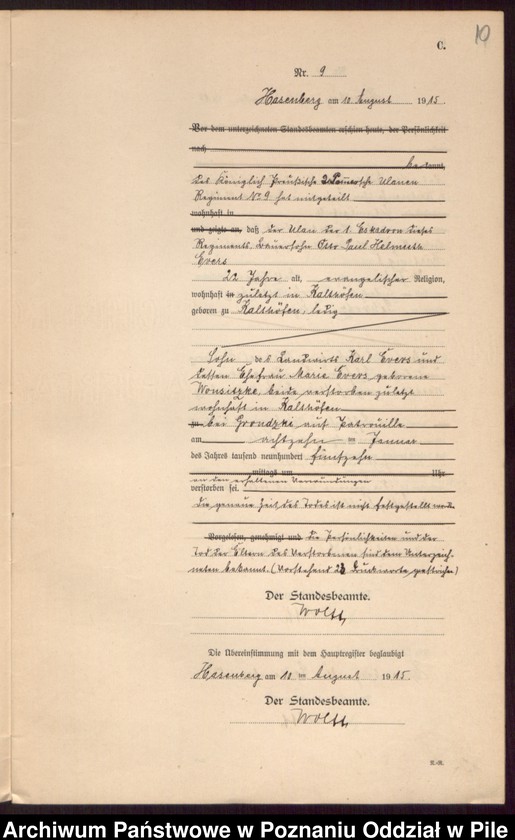 10
C.
Nr. 9
Hasenberg am 10 August 1915.
Vor dem unterzeichneten Standesbeamten erschien heute, der Persönlichkeit
nach
be kannt,
Das Königlich Preußische 2 Pommersche Ulanen
Regiment No 9 hat mitgeteilt
wohnhaft in
und zeigte an, daß der Ulan der 1. Eskadron dieses
Regiments Bauersohn Otto Paul Helmuth
Evers
22 Jahre alt, evangelischer Religion,
wohnhaft in zuletzt in Kalthöfen
geboren zu Kalthöfen, ledig
Sohn des Landwirts Karl Evers und
dessen Ehefrau Marie Evers geborene
beide verstorben zuletzt
wohnhaft in Kalthöfen
zu bei Grondzke auf Patrouille
am achtzehn ten Januar
des Jahres tausend neunhundert fünfzehn
mittags um Uhr
an den erhaltenen Verwundungen
verstorben sei.
Die genaue Zeit des Todes ist nicht festgestellt worden
Vorgelesen, genehmigt und die Persönlichkeiten und der
Tod der Eltern des Verstorbenen sind dem Unterzeich-
neten bekannt. (Vorstehend Druckworte gestrichen)
Der Standesbeamte.
Die Übereinstimmung mit dem Hauptregister beglaubigt
Hasenberg am 10 ten August 1915.
Der Standesbeamte.
K.-R.
Archiwum Państwowe w Poznaniu Oddział w Pile